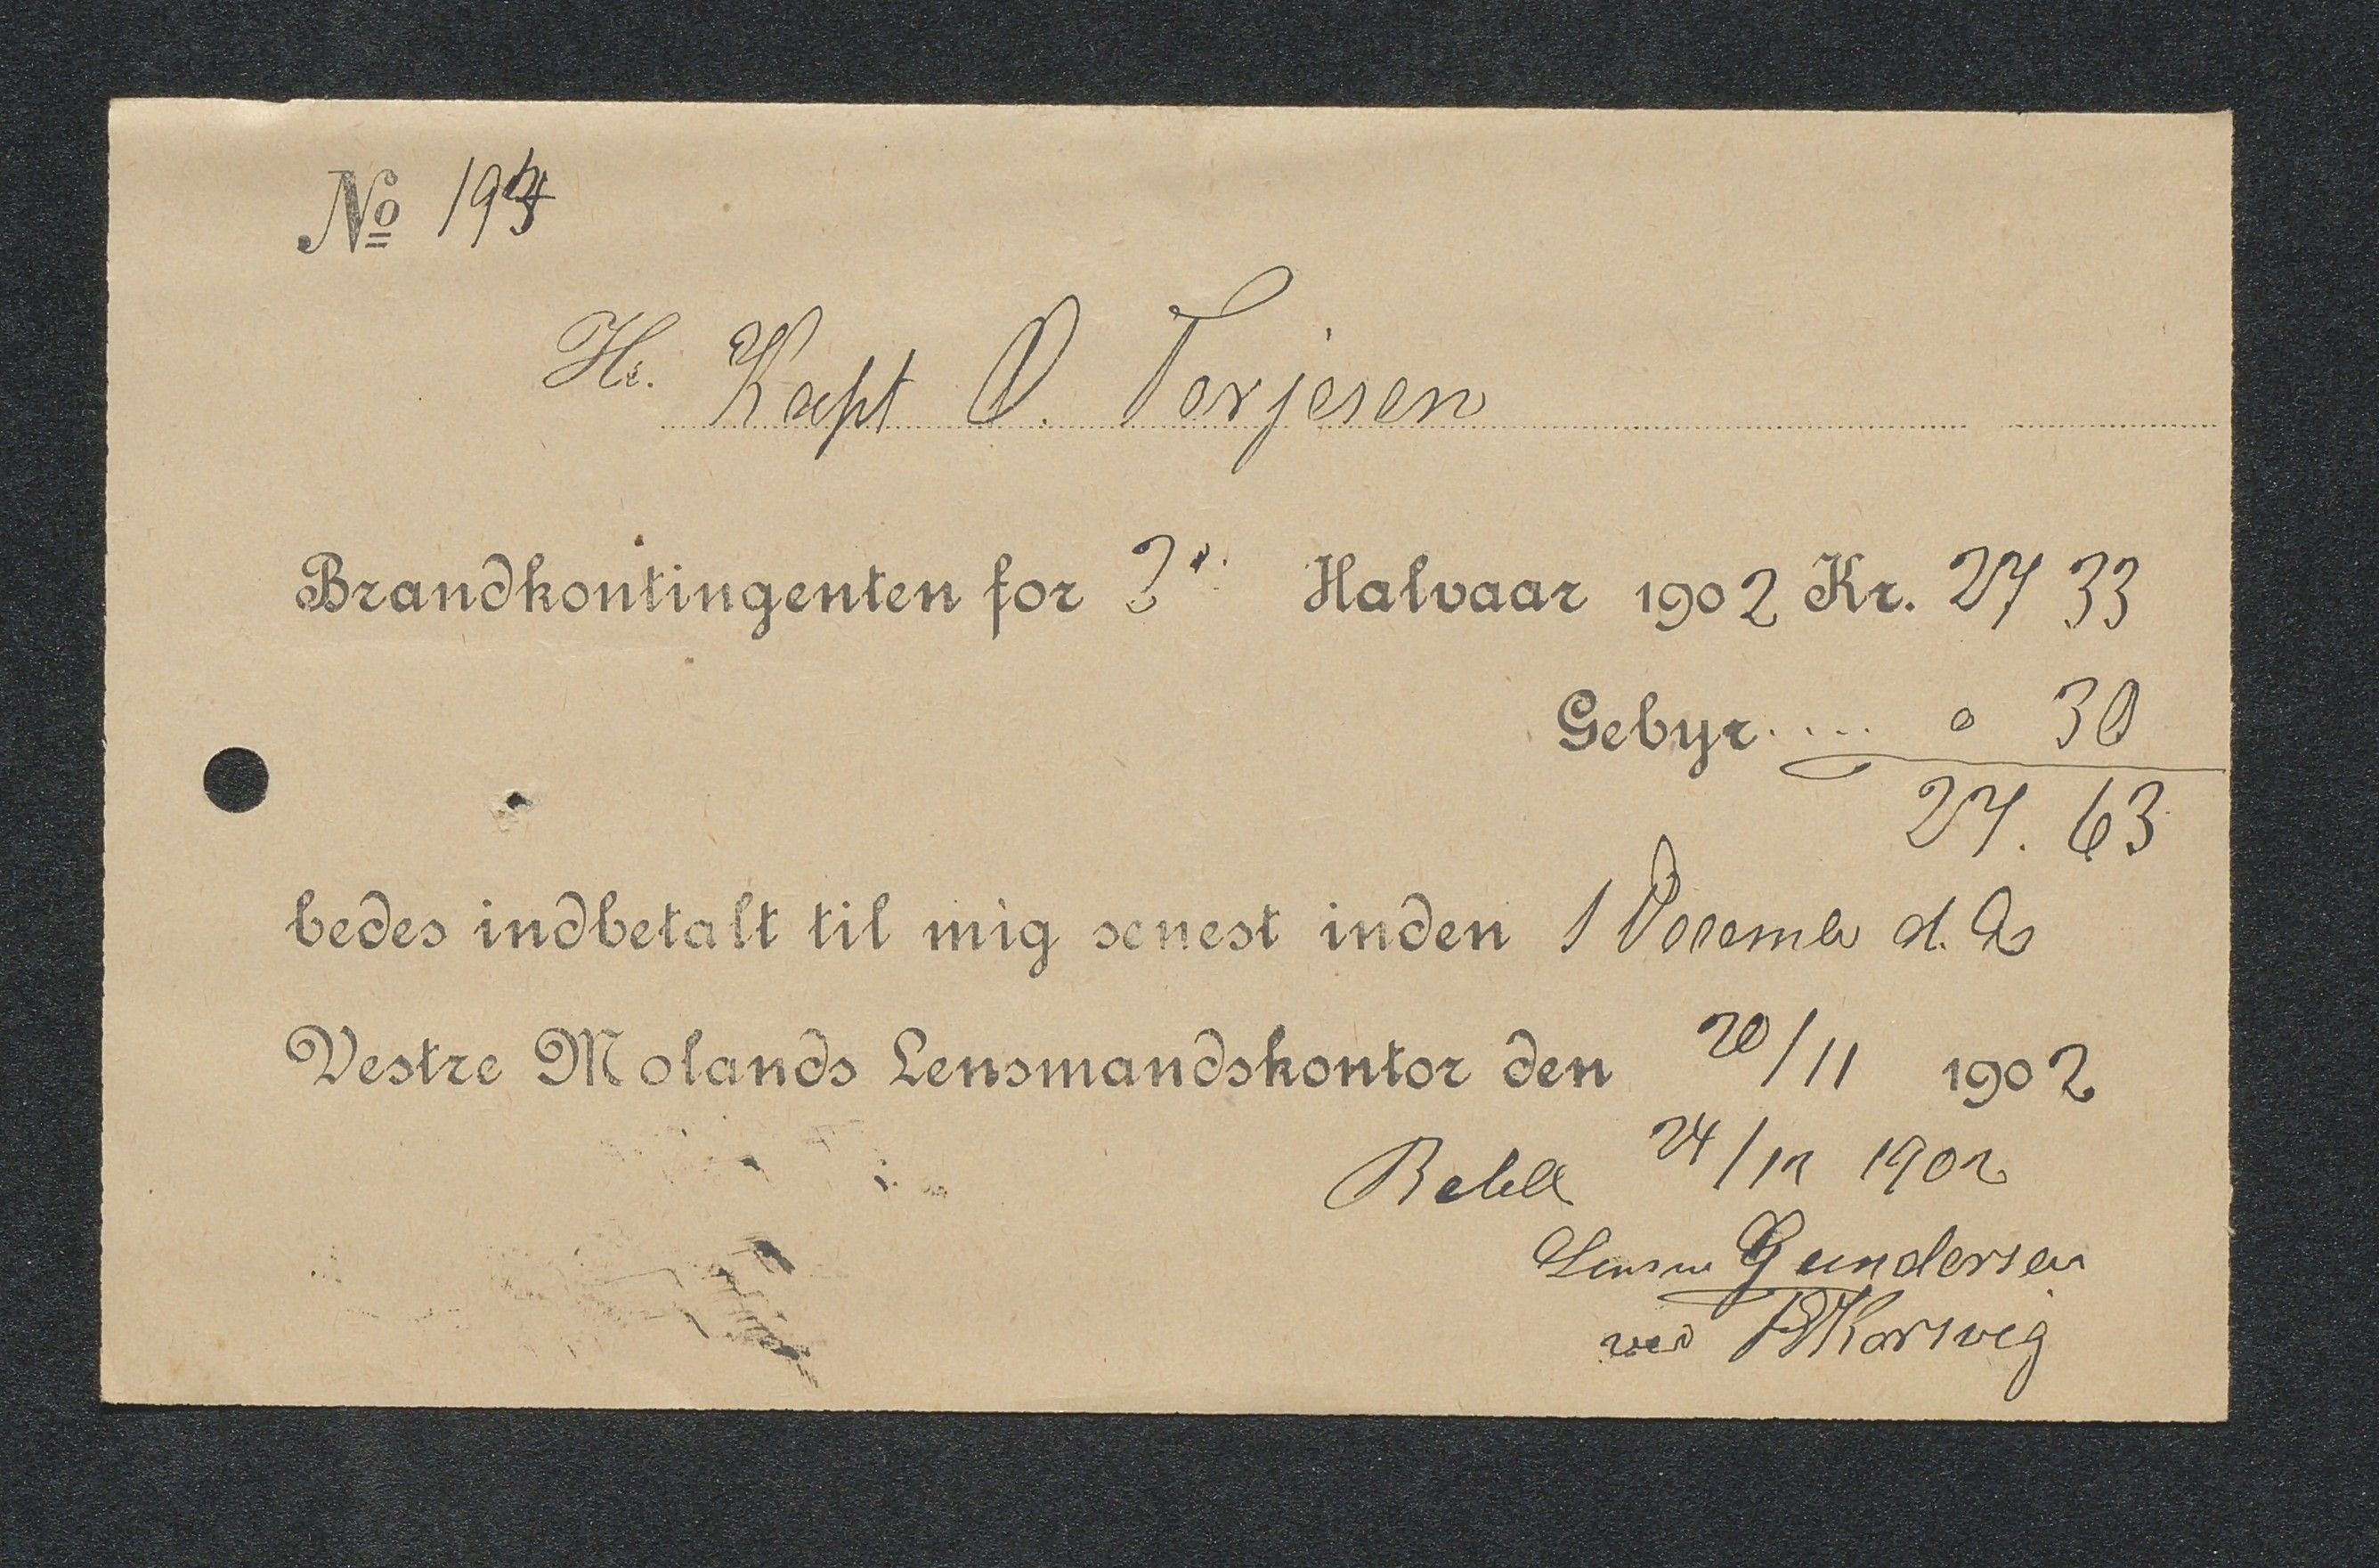 No 194
Hr. Kapt O. Torjesen
Brandkontingenten for 2' Halvaar 1902 Kr. 27 33
Gebyr..... 0 30
27. 63
bedes indbetalt til mig senest inden 1 December d. As
Vestre Molands Lensmandskontor den 20/11 1902
24/12 1902
Lensm Gundersen
ved Korsvig